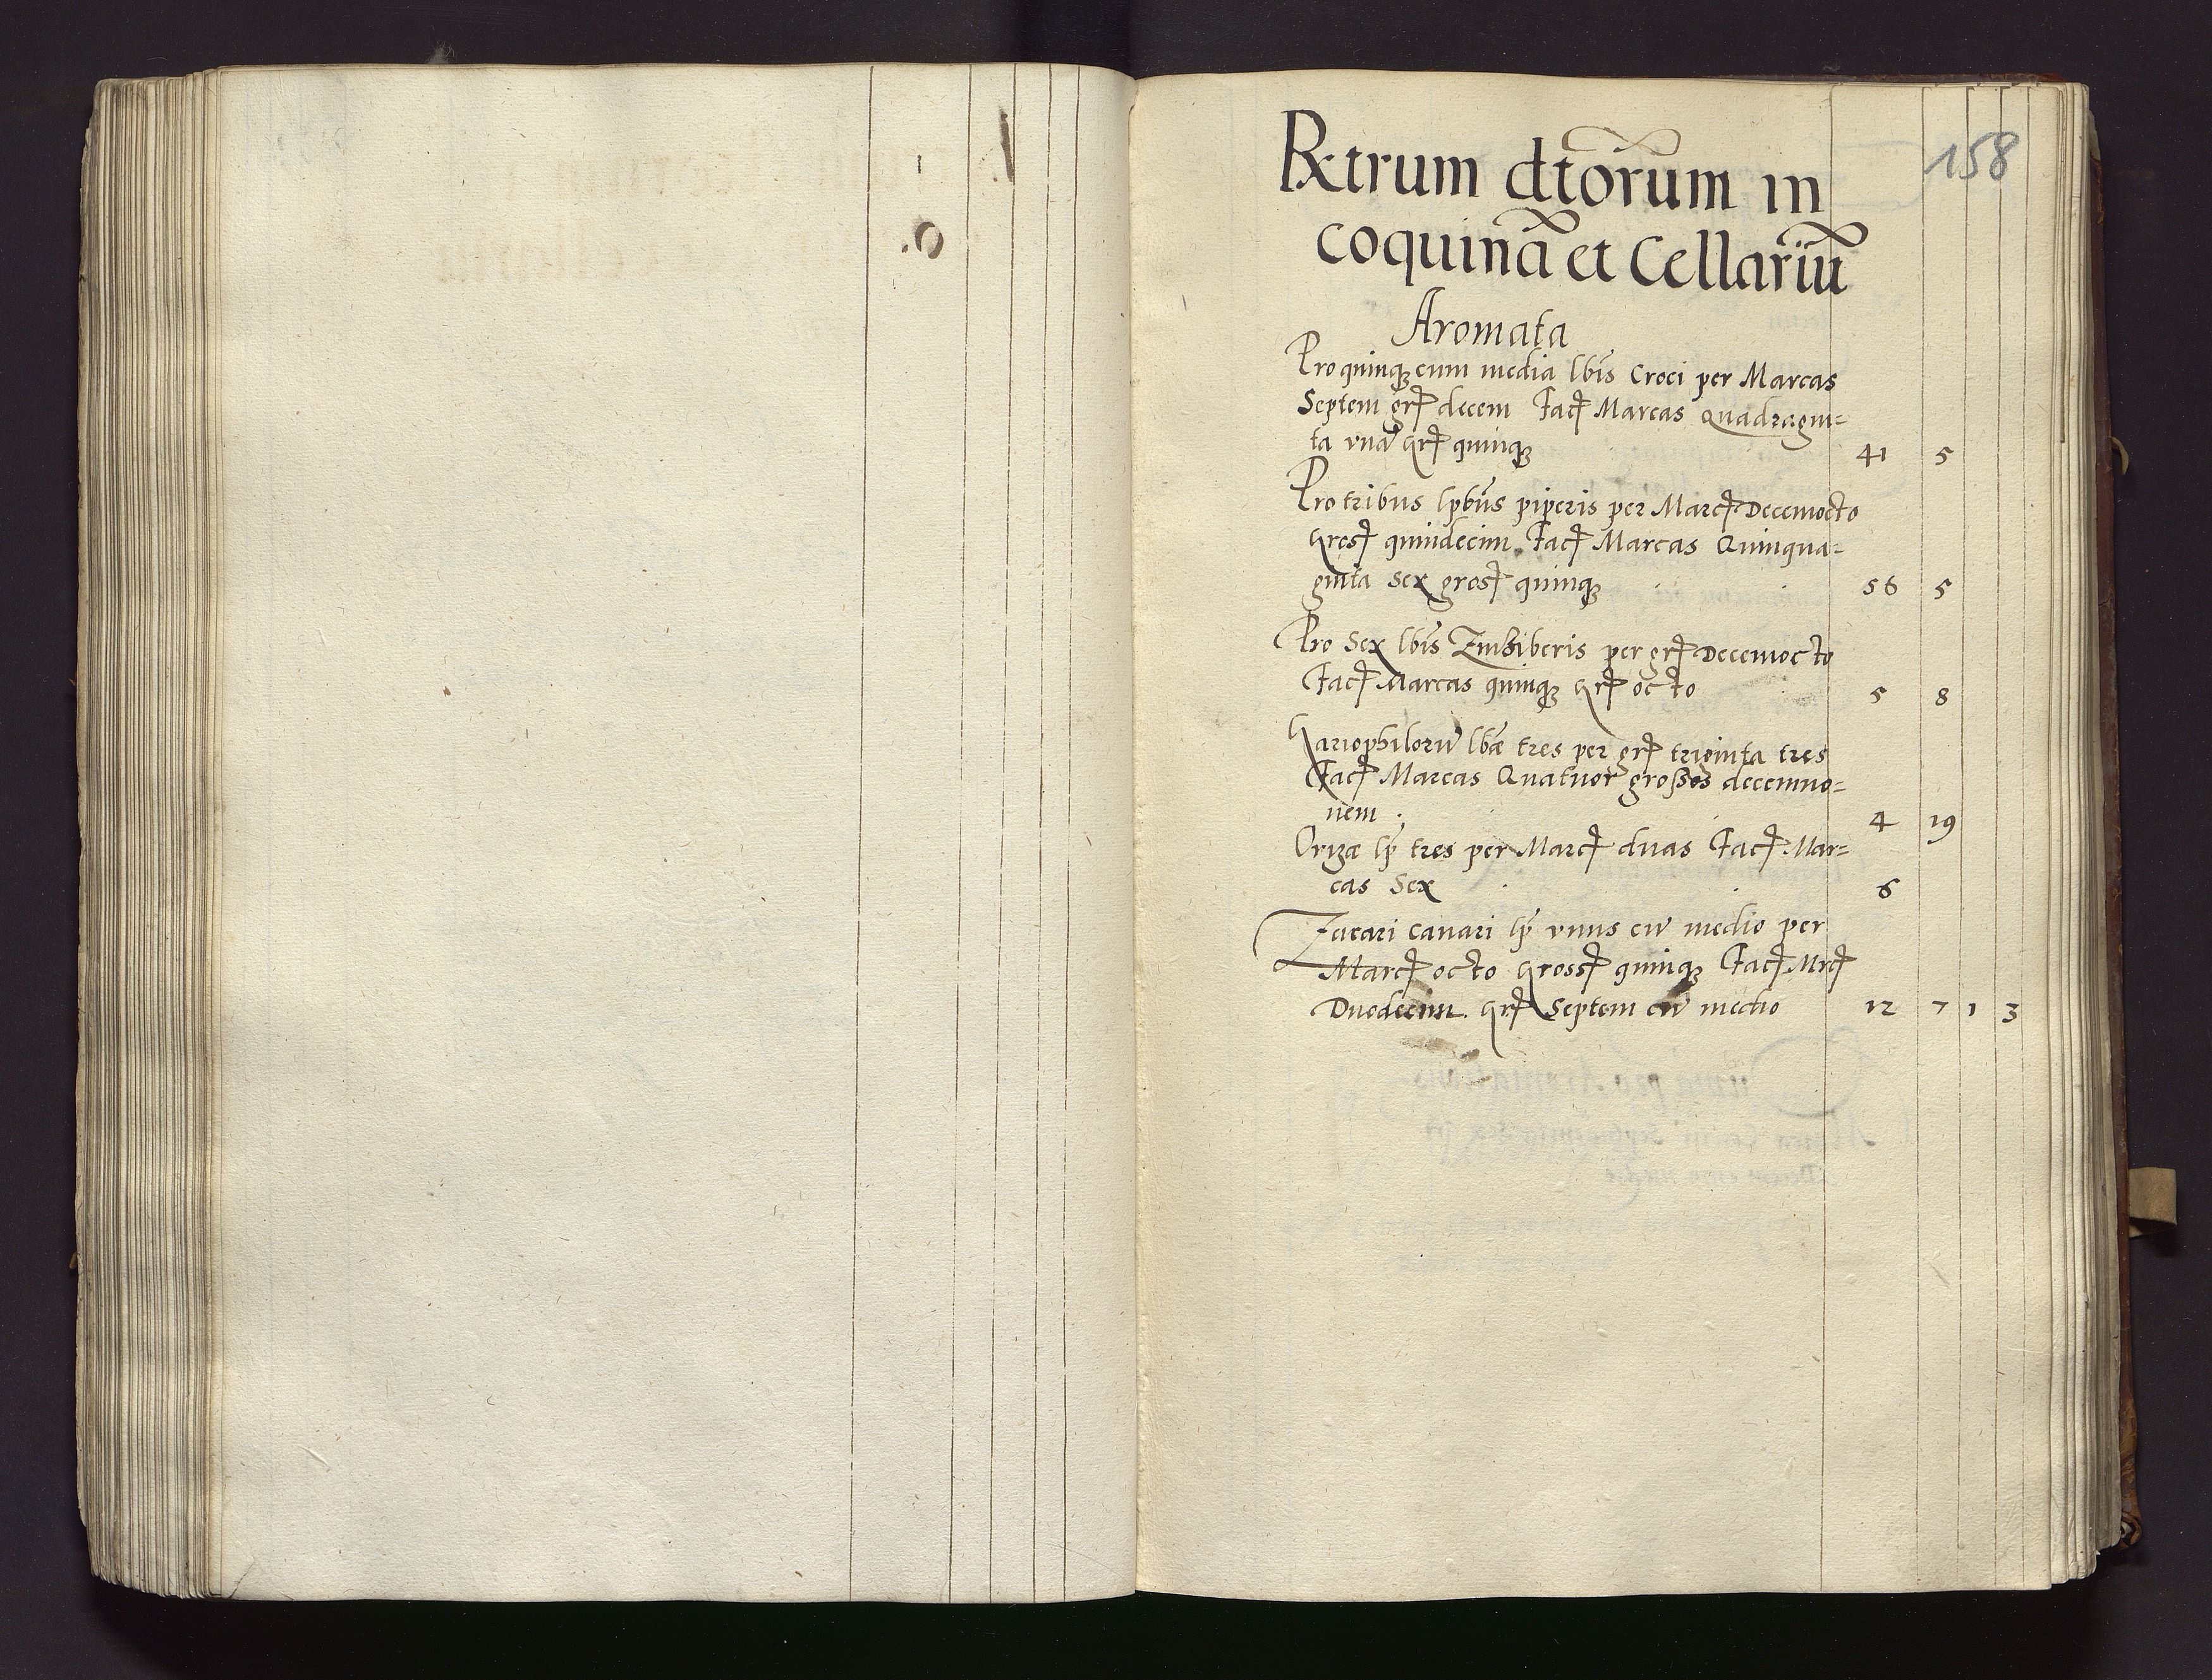 158
Rxtrum dtorum in
coquinā et Cellariū
Aromata
Pro quinqꝫ cum media lbis Croci per Marcas
Septem grꝭ decem Facꝭ Marcas Quadragin=
ta vnā grꝭ quinqꝫ 41 5
Pro tribus lpbus piperis per Marcꝭ Decemocto
grosꝭ quindecim Facꝭ Marcas Quinqua=
ginta Sex grosꝭ quinqꝫ 56 5
Pro Sex lbis Zinziberis per grꝭ Decemocto
Facꝭ Marcas quinqꝫ grꝭ octo 5 8
Gariophilorū lbæ tres per grꝭ triginta tres
Facꝭ Marcas Quatuor großos decemno=
uem 4 19
Orizæ lp tres per Marcꝭ duas Facꝭ Mar=
cas Sex 6
Zucari canari lp vnus cū medio per
Marcꝭ octo grossꝭ quinqꝫ Facꝭ Mrcꝭ
Duodecim grꝭ Septem cū medio 12 7 1 3